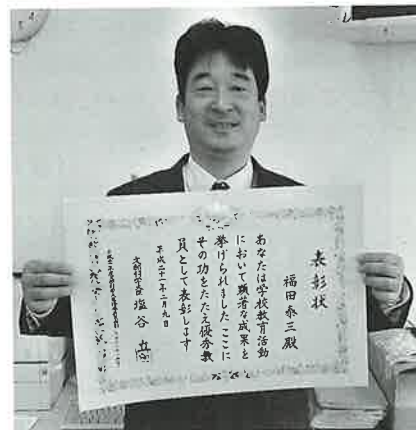 表彰状
福田泰三殿
あなたは学校教育活動
において顕著な成果を
挙げられました ここに
その功をたたえ優秀教
員として表彰します
平成二十一年二月九日
文部科学大臣 塩谷 立